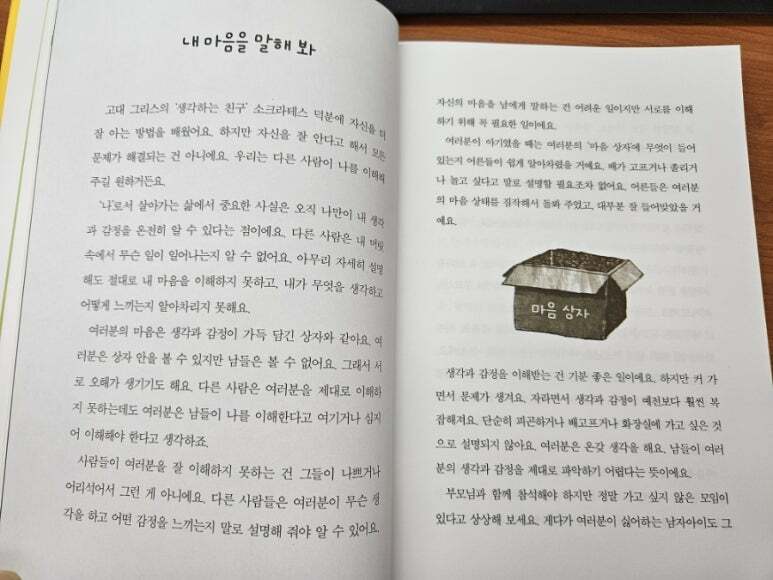 내 마음을 말해 봐
고대 그리스의 '생각하는 친구' 소크라테스 덕분에 자신을 더
잘 아는 방법을 배웠어요. 하지만 자신을 잘 안다고 해서 모든
문제가 해결되는 건 아니에요. 우리는 다른 사람이 나를 이해해
주길 원하거든요.
'나'로서 살아가는 삶에서 중요한 사실은 오직 나만이 내 생각
과 감정을 온전히 알 수 있다는 점이에요. 다른 사람은 내 머릿
속에서 무슨 일이 일어나는지 알 수 없어요. 아무리 자세히 설명
해도 절대로 내 마음을 이해하지 못하고, 내가 무엇을 생각하고
어떻게 느끼는지 알아차리지 못해요.
여러분의 마음은 생각과 감정이 가득 담긴 상자와 같아요. 여
러분은 상자 안을 볼 수 있지만 남들은 볼 수 없어요. 그래서 서
로 오해가 생기기도 해요. 다른 사람은 여러분을 제대로 이해하
지 못하는데도 여러분은 남들이 나를 이해한다고 여기거나 심지
어 이해해야 한다고 생각하죠.
사람들이 여러분을 잘 이해하지 못하는 건 그들이 나쁘거나
어리석어서 그런 게 아니에요. 다른 사람들은 여러분이 무슨 생
각을 하고 어떤 감정을 느끼는지 말로 설명해 줘야 알 수 있어요.
자신의 마음을 남에게 말하는 건 어려운 일이지만 서로를 이해
하기 위해 꼭 필요한 일이에요.
여러분이 아기였을 때는 여러분의 '마음 상자'에 무엇이 들어
있는지 어른들이 쉽게 알아차렸을 거예요. 배가 고프거나 졸리거
나 놀고 싶다고 말로 설명할 필요조차 없어요. 어른들은 여러분
의 마음 상태를 짐작해서 돌봐 주었고, 대부분 잘 들어맞았을 거
예요.
마음 상자
생각과 감정을 이해받는 건 기분 좋은 일이에요. 하지만 커 가
면서 문제가 생겨요. 자라면서 생각과 감정이 예전보다 훨씬 복
잡해져요. 단순히 피곤하거나 배고프거나 화장실에 가고 싶은 것
으로 설명되지 않아요. 여러분은 온갖 생각을 해요. 남들이 여러
분의 생각과 감정을 제대로 파악하기 어렵다는 뜻이에요.
부모님과 함께 참석해야 하지만 정말 가고 싶지 않은 모임이
있다고 상상해 보세요. 게다가 여러분이 싫어하는 남자아이도 그